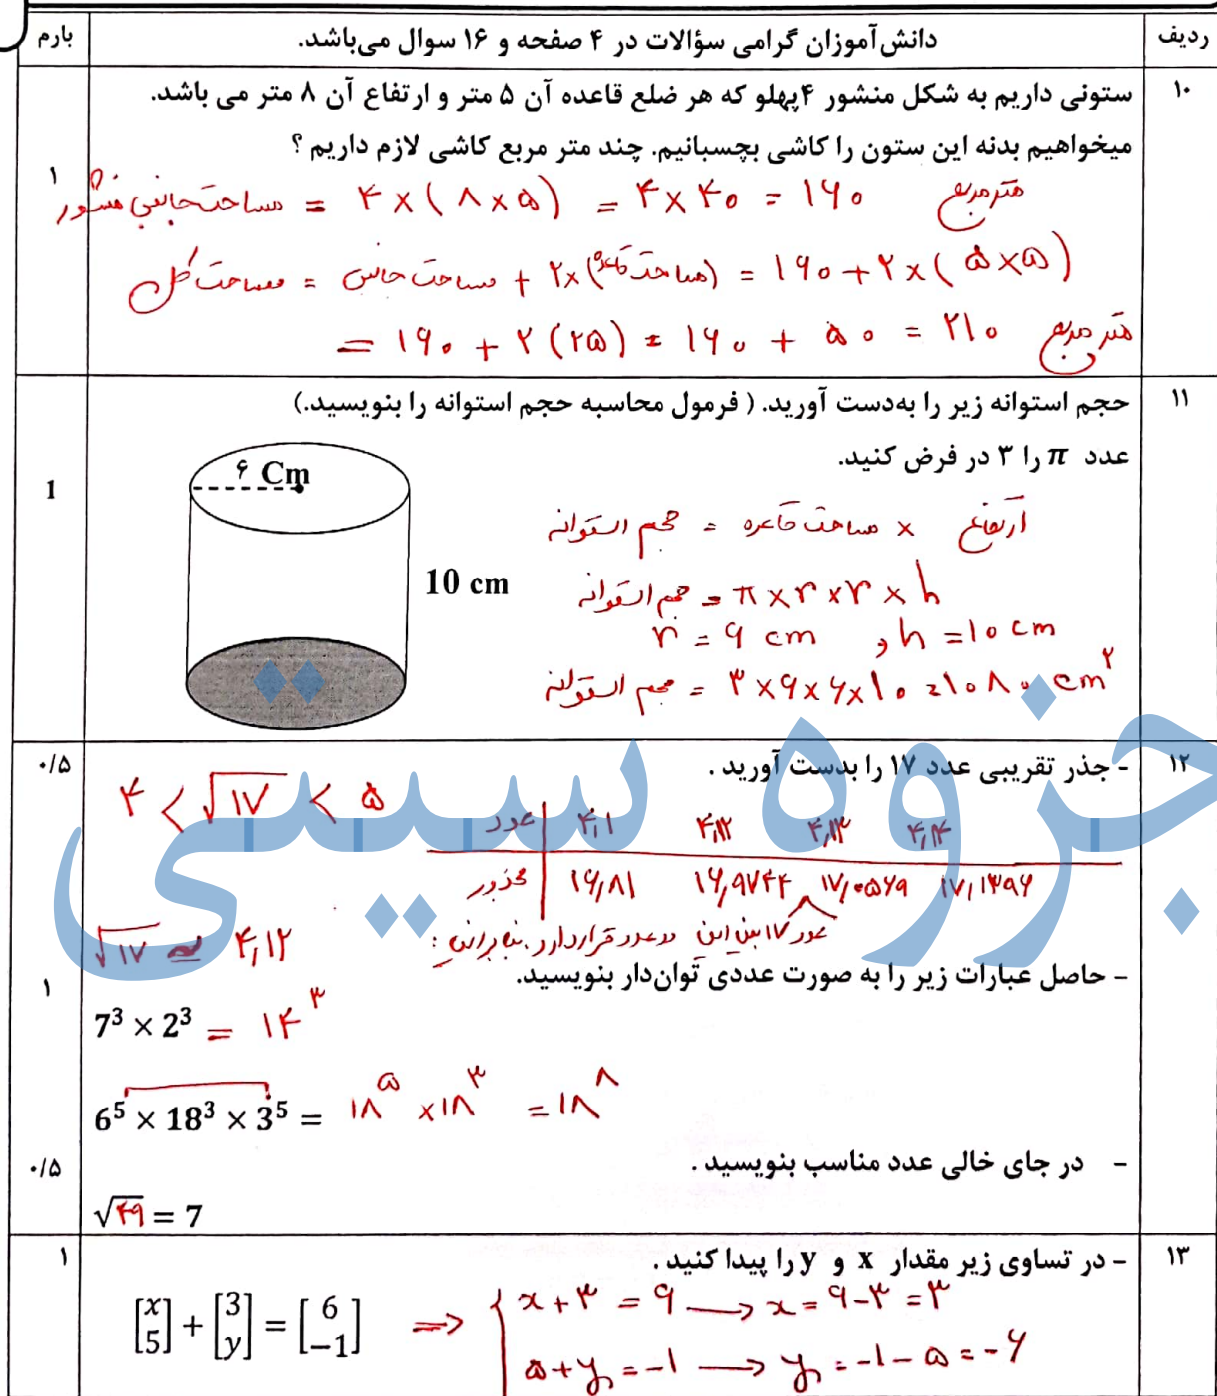 ردیف دانش‌آموزان گرامی سؤالات در ۴ صفحه و ۱۶ سوال می‌باشد. بارم
۱۰ ستونی داریم به شکل منشور ۴پهلو که هر ضلع قاعده آن ۵ متر و ارتفاع آن ۸ متر می باشد.
میخواهیم بدنه این ستون را کاشی بچسبانیم. چند متر مربع کاشی لازم داریم ؟
۱
مساحت جانبی منشور = ۴ × (۸ × ۵) = ۴ × ۴۰ = ۱۶۰ متر مربع
مساحت کل = مساحت جانبی + ۲× (مساحت قاعده) = ۱۶۰ + ۲ × (۵×۵)
= ۱۶۰ + ۲ (۲۵) = ۱۶۰ + ۵۰ = ۲۱۰ متر مربع
۱۱ حجم استوانه زیر را به‌دست آورید. ( فرمول محاسبه حجم استوانه را بنویسید.)
عدد π را ۳ در فرض کنید.
1
۶ Cm
10 cm
حجم استوانه = مساحت قاعده × ارتفاع
حجم استوانه = π × r × r × h
r = ۶ cm , h = ۱۰ cm
حجم استوانه = ۳ × ۶ × ۶ × ۱۰ = ۱۰۸۰ cm^۲
۱۲ - جذر تقریبی عدد ۱۷ را بدست آورید . ۰/۵
۴ < √۱۷ < ۵
عدد ۴,۱ ۴,۱۲ ۴,۱۳ ۴,۱۴
مجذور ۱۶,۸۱ ۱۶,۹۷۴۴ ۱۷,۰۵۶۹ ۱۷,۱۳۹۶
عدد ۱۷ بین این دو عدد قرار دارد. بنابراین :
√۱۷ ≃ ۴,۱۲
جزوه سیتی
- حاصل عبارات زیر را به صورت عددی توان‌دار بنویسید. ۱
7³ × 2³ = ۱۴^۳
6⁵ × 18³ × 3⁵ = ۱۸^۵ × ۱۸^۳ = ۱۸^۸
- در جای خالی عدد مناسب بنویسید . ۰/۵
√۴۹ = 7
۱۳ - در تساوی زیر مقدار x و y را پیدا کنید . ۱
[x 5] + [3 y] = [6 −1] ⟹ { x + ۳ = ۶ ⟶ x = ۶ - ۳ = ۳
۵ + y = -۱ ⟶ y = -۱ - ۵ = -۶